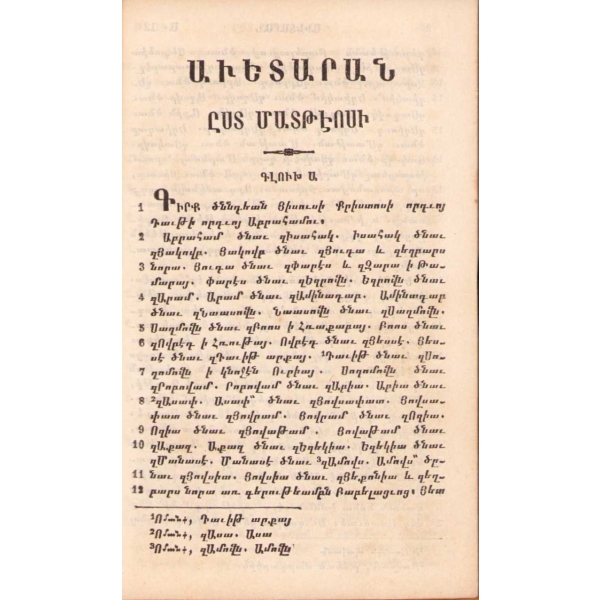 ԱՒԵՏԱՐԱՆ
ԸՍՏ ՄԱՏԹԷՈՍԻ
ԳԼՈՒԽ Ա
1 ԳԻՐՔ ծննդեան Յիսուսի Քրիստոսի որդւոյ
Դաւթի որդւոյ Աբրահամու։
2 Աբրահամ ծնաւ զԻսահակ. Իսահակ ծնաւ
զՅակովբ. Յակովբ ծնաւ զՅուդա և զեղբարս
3 նորա. Յուդա ծնաւ զՓարէս և զԶարա ի Թա-
մարայ. Փարէս ծնաւ զԵզրովն. Եզրովն ծնաւ
4 զԱրամ. Արամ ծնաւ զԱմինադաբ. Ամինադաբ
ծնաւ զՆաասովն. Նաասովն ծնաւ զՍաղմովն.
5 Սաղմովն ծնաւ զԲոոս ի Հռաքաբայ. Բոոս ծնաւ
6 զՈվբէդ ի Հռութայ. Ովբէդ ծնաւ զՅեսսէ. Յես-
սէ ծնաւ զԴաւիթ արքայ. ¹Դաւիթ ծնաւ զՍո-
7 ղոմովն ի կնոջէն Ուրիայ. Սողոմովն ծնաւ
զՐոբովամ. Րոբովամ ծնաւ զԱբիա. Աբիա ծնաւ
8 ²զԱսափ. Ասափ" ծնաւ զՅովսափատ. Յովսա-
փատ ծնաւ զՅովրամ. Յովրամ ծնաւ զՈզիա.
9 Ոզիա ծնաւ զՅովաթամ. Յովաթամ ծնաւ
10 զԱքազ. Աքազ ծնաւ զԵզեկիա. Եզեկիա ծնաւ
զՄանասէ. Մանասէ ծնաւ ³զԱմովս. Ամովս" ծը-
11 նաւ զՅովսիա. Յովսիա ծնաւ զՅեքոնիա և զեղ-
12 բարս նորա առ գերութեամբն Բաբելացւոց։ Յետ
¹Ոմանք, Դաւիթ արքայ
²Ոմանք, զԱսա. Ասա
³Ոմանք, զԱմովն. Ամովն